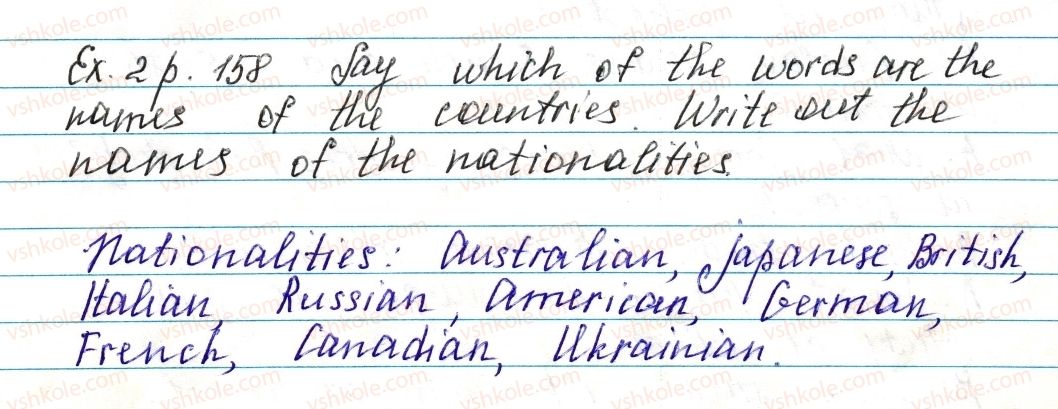 Ex. 2 p. 158 Say which of the words are the
names of the countries. Write out the
names of the nationalities.
Nationalities: Australian, Japanese, British,
Italian, Russian, American, German,
French, Canadian, Ukrainian.
vshkole.com